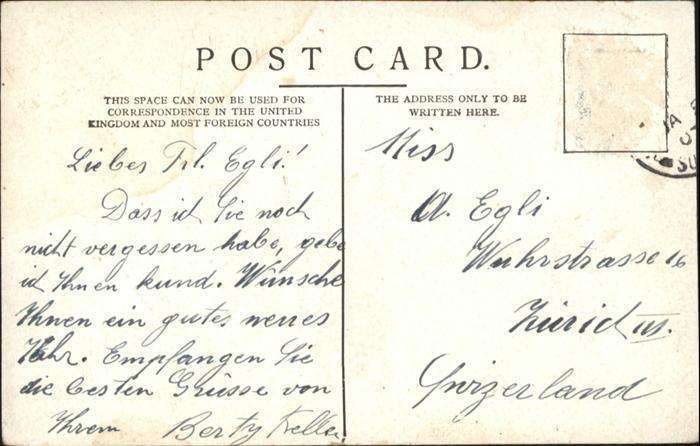 POST CARD.
THIS SPACE CAN NOW BE USED FOR
CORRESPONDENCE IN THE UNITED
KINGDOM AND MOST FOREIGN COUNTRIES
THE ADDRESS ONLY TO BE
WRITTEN HERE.
Liebes Frl. Egli!
Dass ich Sie noch
nicht vergessen habe, gebe
ich Ihnen kund. Wünsche
Ihnen ein gutes neues
Jahr. Empfangen Sie
die besten Grüsse von
Ihrem Berty Keller
Miss
A. Egli
Wuhrstrasse 16
Zürich III.
Swizerland